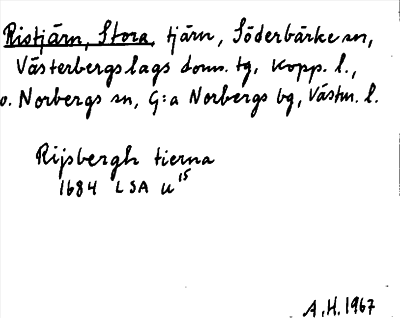 Ristjärn, Stora, tjärn, Söderbärke sn,
Västerbergslags doms. tg. Kopp. l.,
o. Norbergs sn, G:a Norbergs bg, Västm. l.
Rijsbergh tierna
1684 LSA U15
A.H. 1967